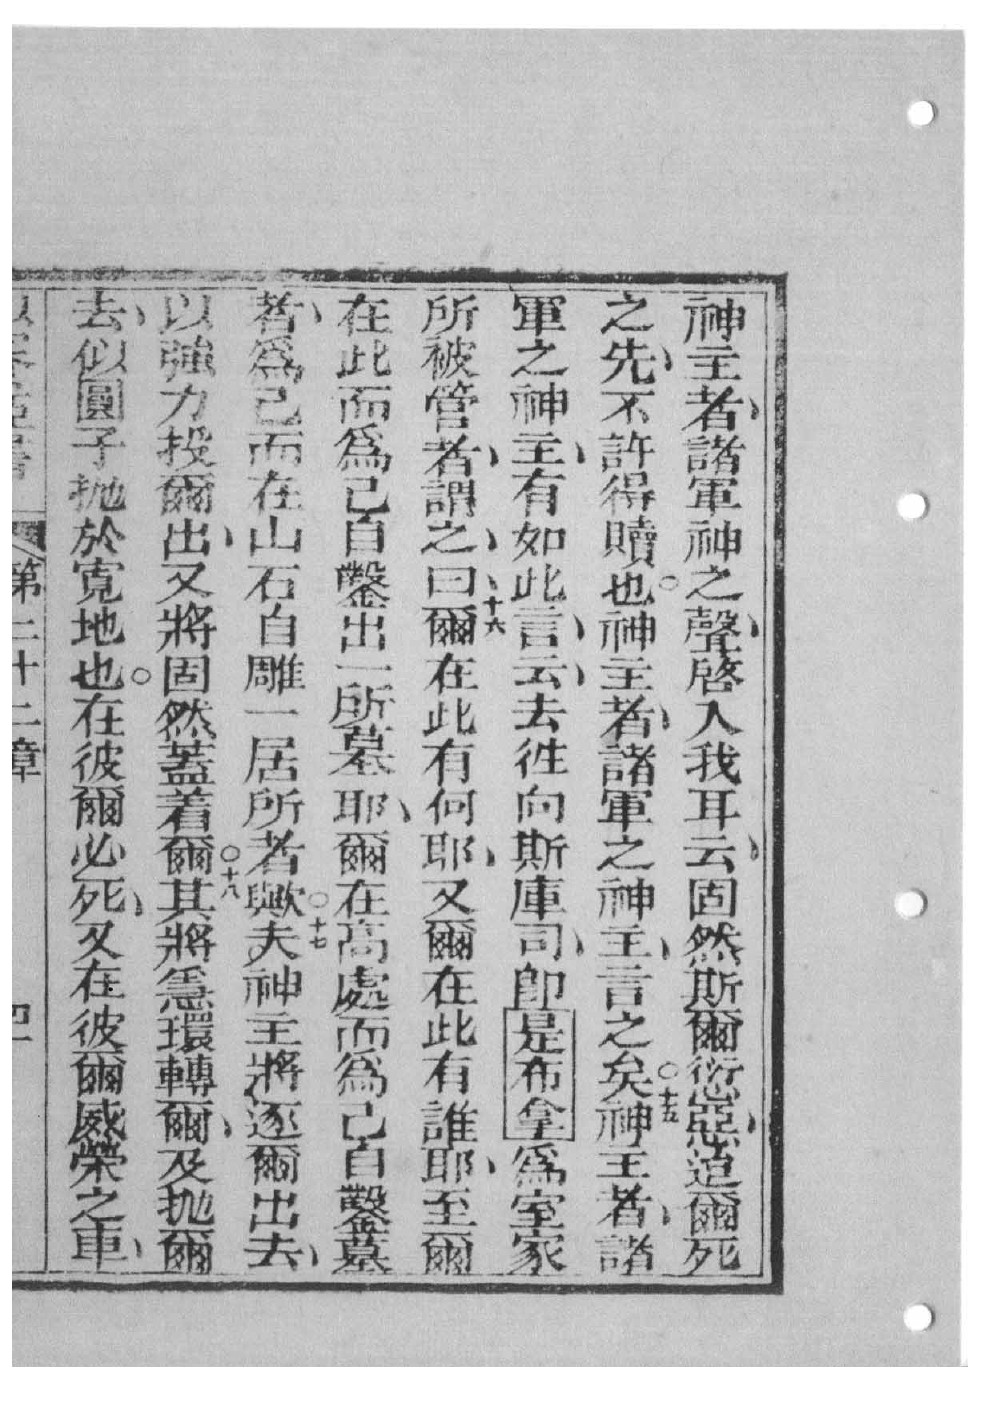 神主者、諸軍神之聲、啓入我耳云、固然斯爾愆惡、迨爾死
之先、不許得贖也。神主者、諸軍之神主、言之矣。十五神主者、諸
軍之神主、有如此言、云、去徃向斯庫司、卽是布拿爲室家
所被管者、謂之、曰、十六爾在此有何耶、又爾在此有誰耶、至爾
在此而爲己自鑿出一所墓耶、爾在高處而爲己自鑿墓
者、爲己而在山石自雕一居所者歟。十七夫神主將逐爾出去、
以強力投爾出、又將固然蓋着爾。十八其將𢚩環轉爾、及抛爾
去、似圓子抛於寛地也。在彼爾必死、又在彼爾威榮之車、
第二十二章